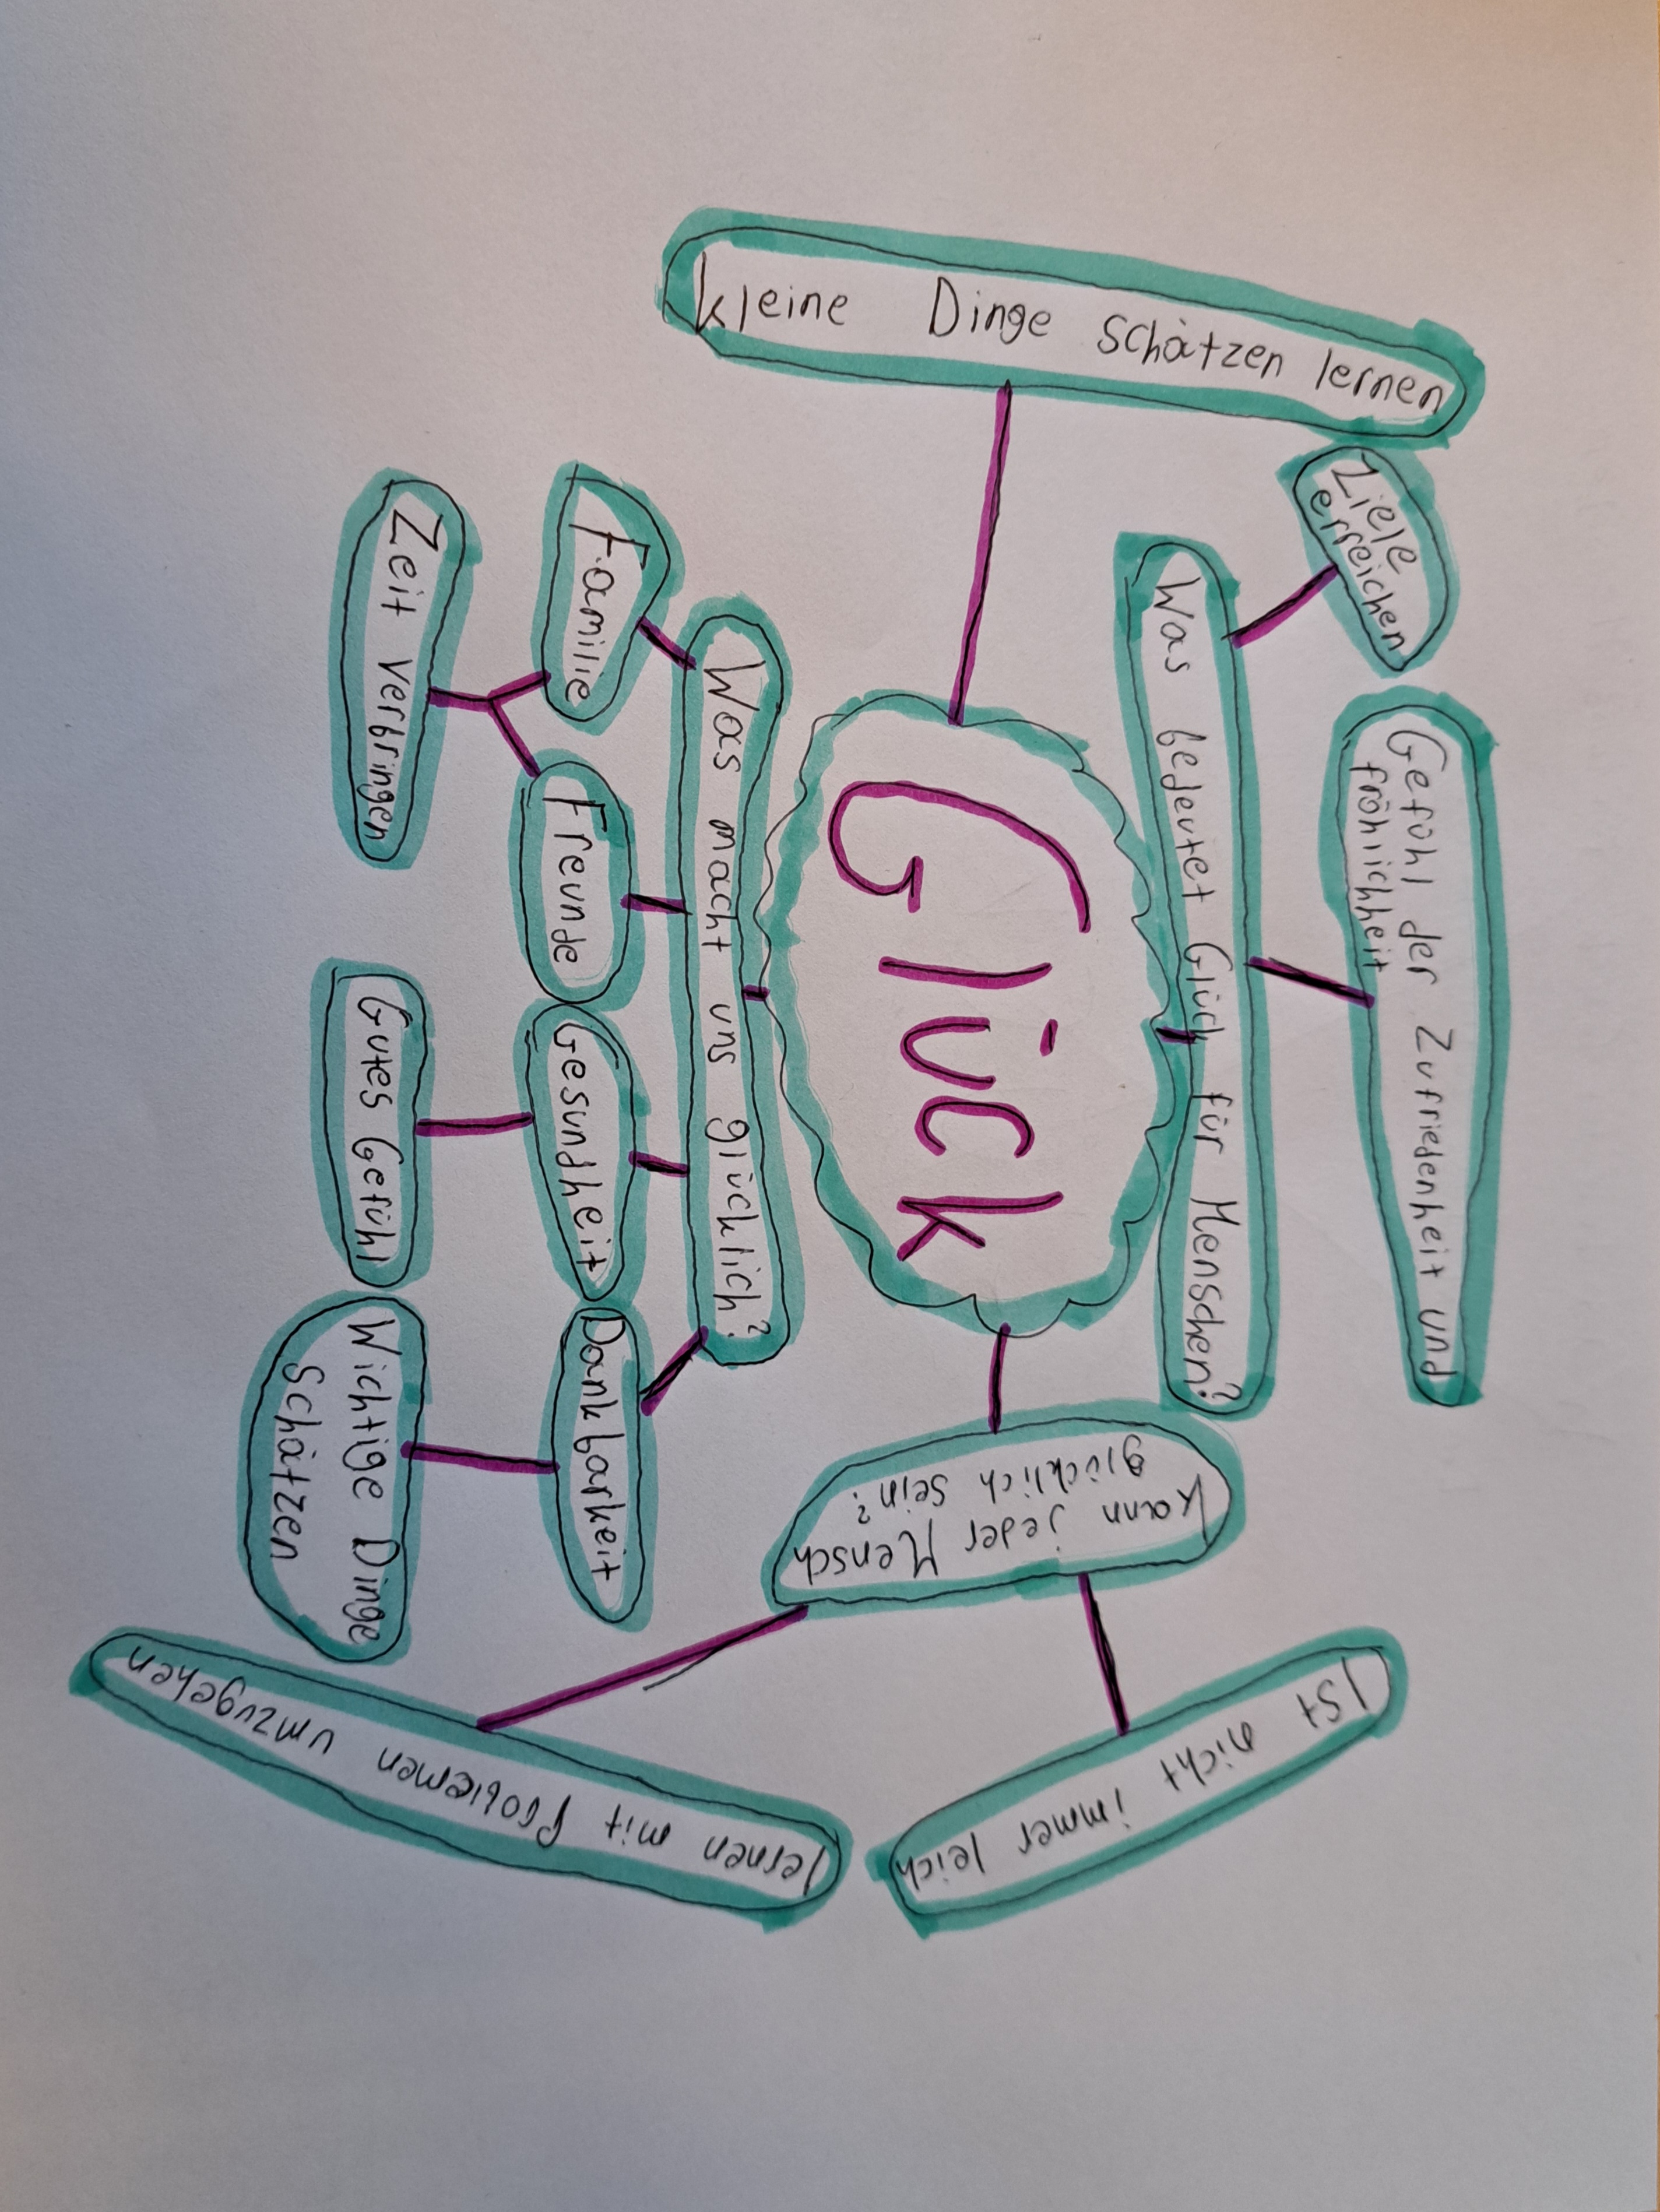 kleine Dinge schätzen lernen
Ziele
erreichen
Gefühl der Zufriedenheit und
fröhlichheit
Was bedeutet Glück für Menschen?
Glück
Was macht uns glücklich?
Familie
Freunde
Gesundheit
Dankbarkeit
Zeit verbringen
Gutes Gefühl
Wichtige Dinge
Schätzen
kann jeder Mensch
glücklich sein?
Ist nicht immer leich
lernen mit Problemen umzugehen